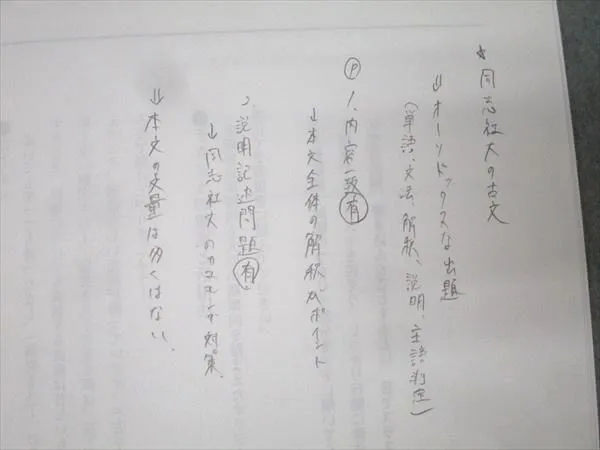 ☆ 同志社大の古文
↓ オーソドックスな出題
(単語、文法、解釈、説明、主語判定)
Ⓟ 1、内容一致㊒
↓ 本文全体の解釈がポイント
2、説明記述問題㊒
↓ 同志社大の 対策、
↓ 本文の文量は多くはない、